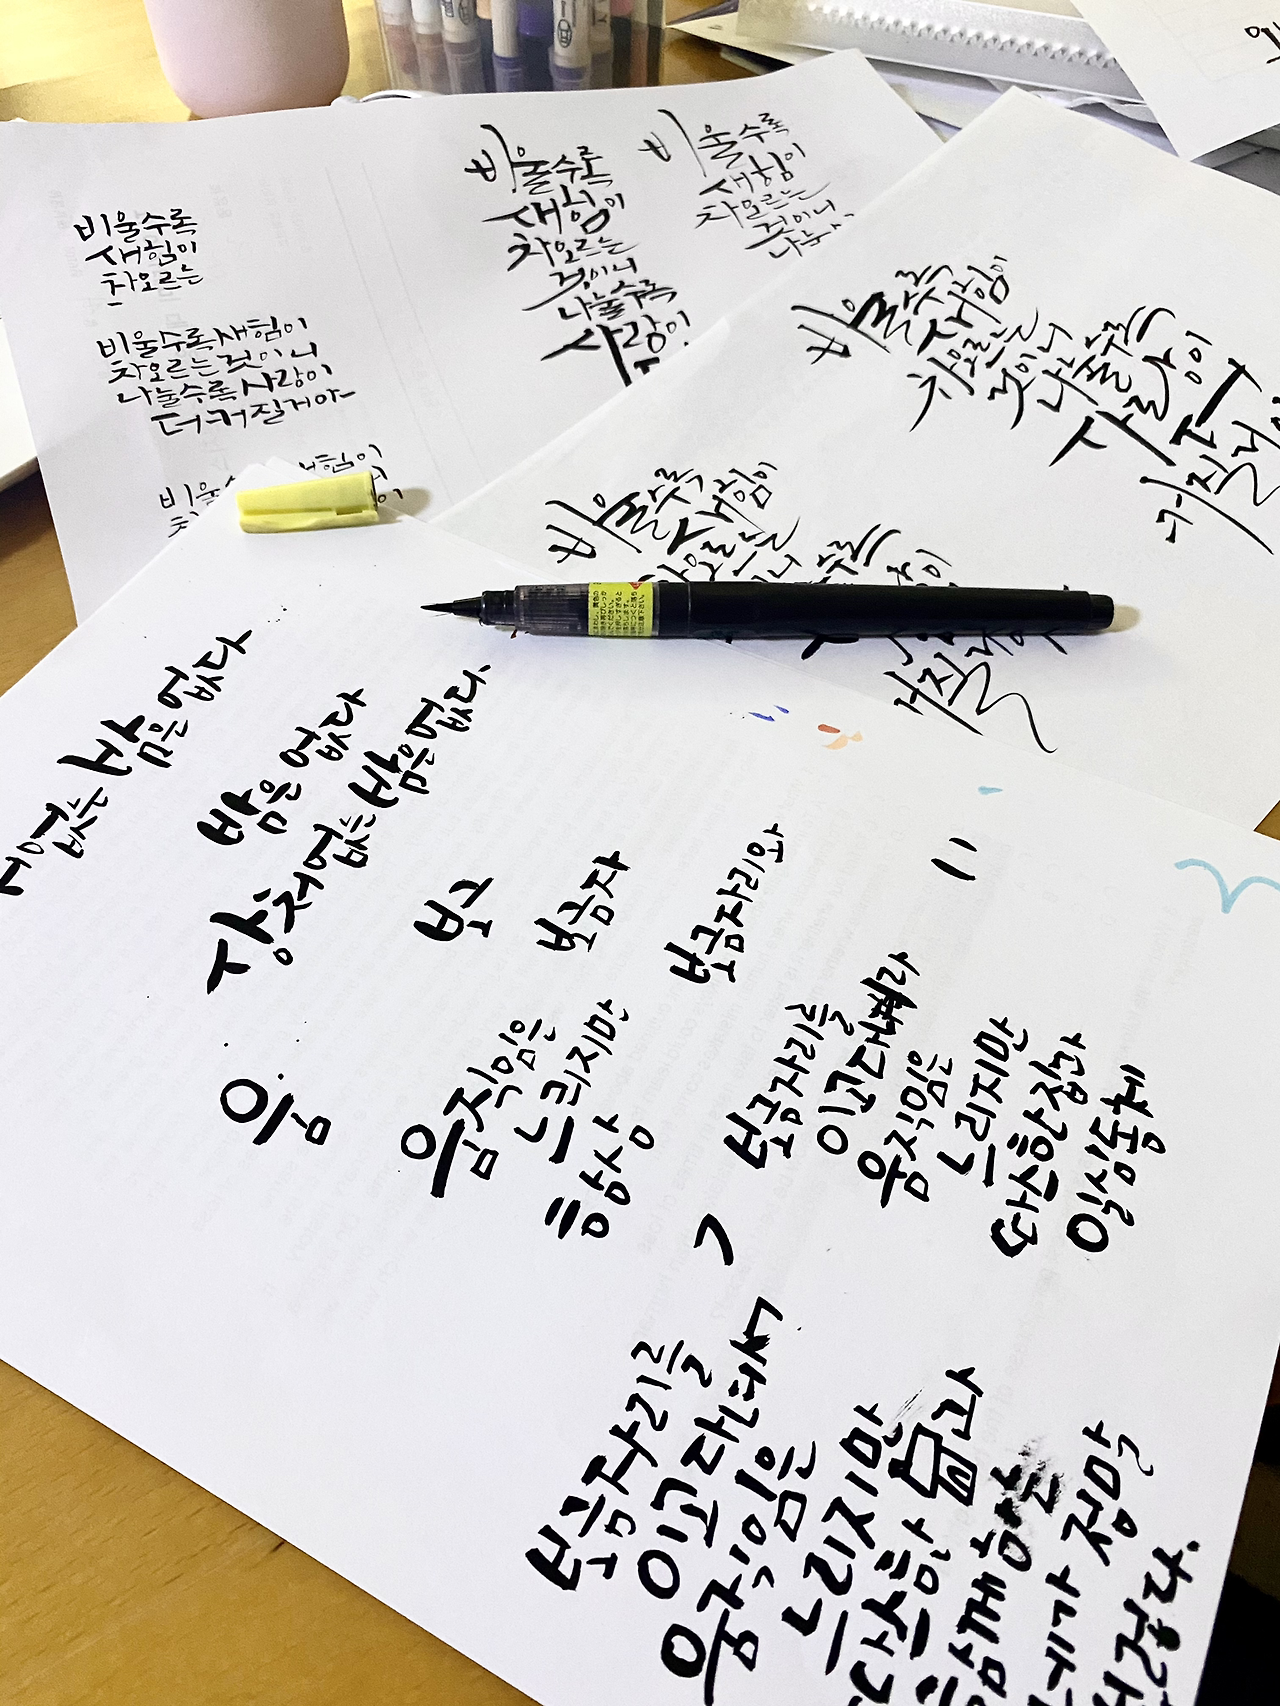 비울수록
새힘이
차오르는
비울수록새힘이
차오르는것이니
나눌수록사랑이
더커질거야
비울수록
새힘이
차오르는
것이니
나눌수록
사랑이
비울수록
새힘이
차오르는
것이니
나눌
비울수록
새힘이
차오르는
것이니
나눌수록
사랑이
커질거야
비울수록
새힘이
차오르는
커질거야
없는 밤은 없다
밤은 없다
상처없는 밤은없다.
보고
보금자
보금자리와
움
움직임은
느리지만
항상
보금자리를
이고다녀라
움직임은
느리지만
따스한집과
일심동체
보금자리를
이고다녀서
움직임은
느리지만
따스한
과
함께하는
네가 정말